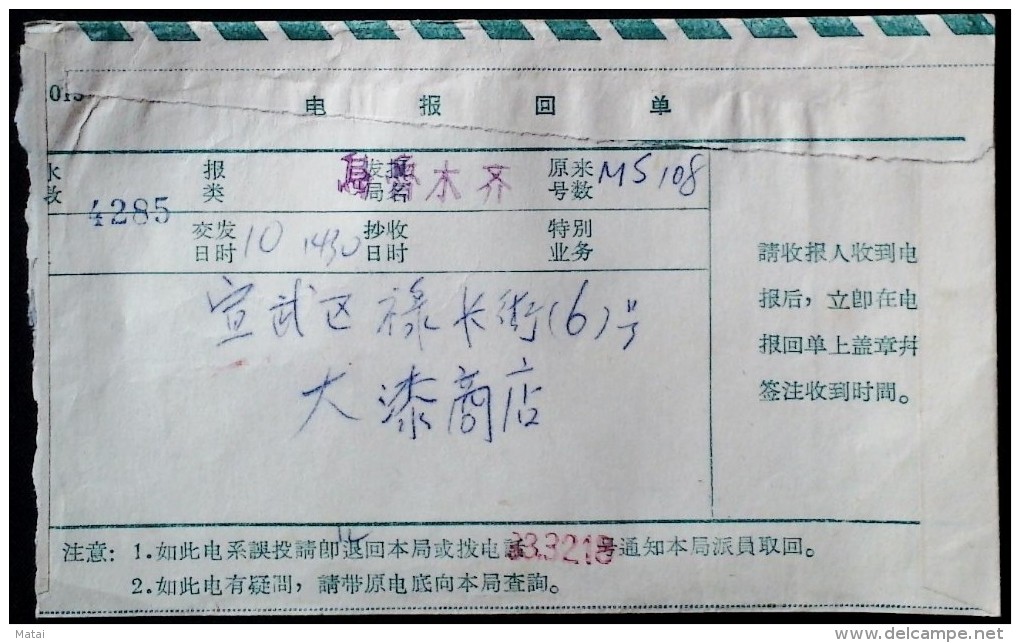 电报回单
报类
发报局名
木齐
原来号数 MS108
4285
交发日时 10 1430
抄收日时
特別业务
宣武区禄长街(6)号
大漆商店
請收报人收到电
报后，立卽在电
报回单上盖章幷
签注收到时間。
注意：1.如此电系誤投請卽退回本局或拨电話33.3218号通知本局派員取回。
2.如此电有疑問，請带原电底向本局查詢。
Matai
delcampe.net